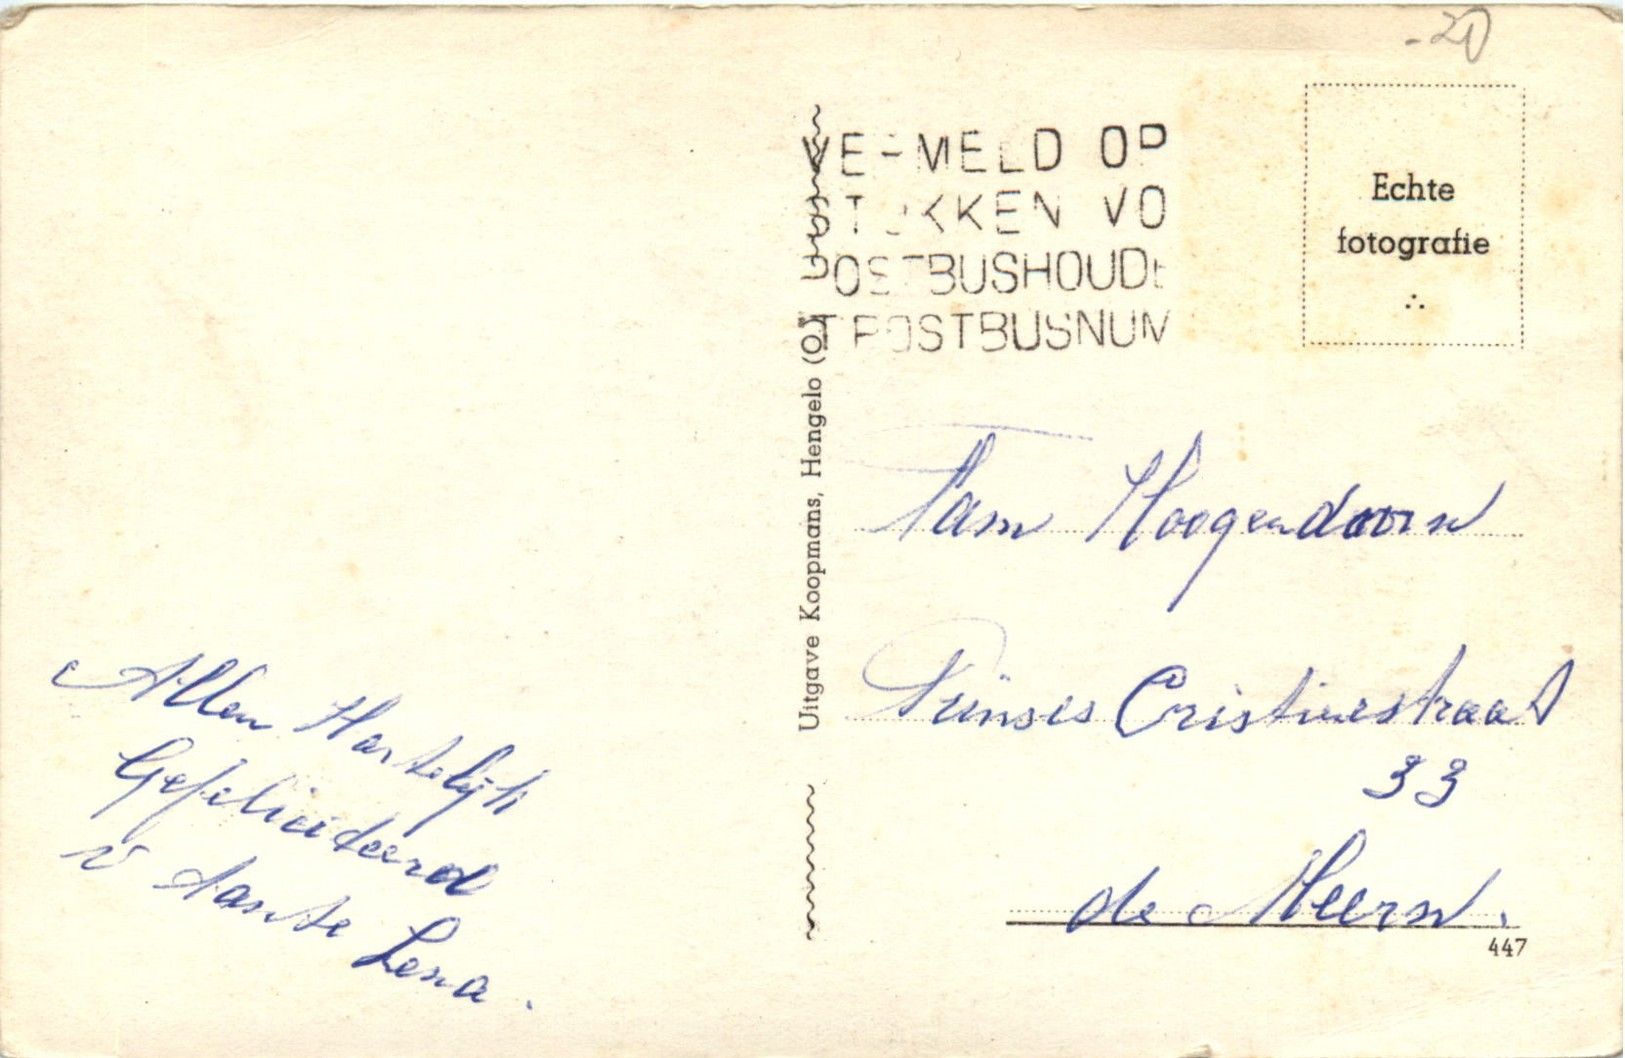 -20
VERMELD OP
STUKKEN VO
POSTBUSHOUDE
T POSTBUSNUM
Echte
fotografie
Uitgave Koopmans, Hengelo (O.)
Fam Hoogendoorn
Prinses Cristinestraat
33
de Meern.
447
Allen Hartelijk
Gefeliciteerd
v tante Lena.